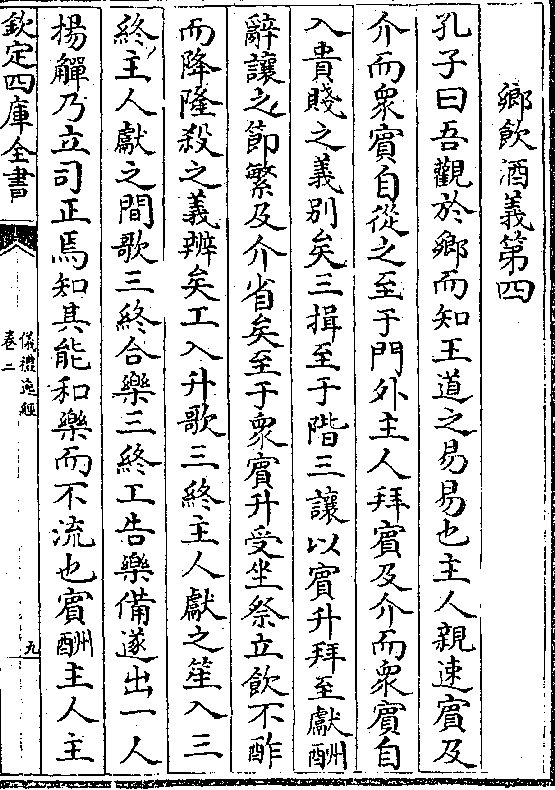 鄉飲酒義第四
孔子曰吾觀於鄉而知王道之易易也主人親速賓及
介而衆賓自從之至于門外主人拜賓及介而衆賓自
入貴賤之義別矣三揖至于階三讓以賓升拜至獻酬
辭讓之節繁及介省矣至于衆賓升受坐祭立飲不酢
而降隆殺之義辨矣工入升歌三終主人獻之笙入三
終主人獻之間歌三終合樂三終工告樂備遂出一人
揚觶乃立司正焉知其能和樂而不流也賓酬主人主
欽定四庫全書
儀禮逸經
卷二
九